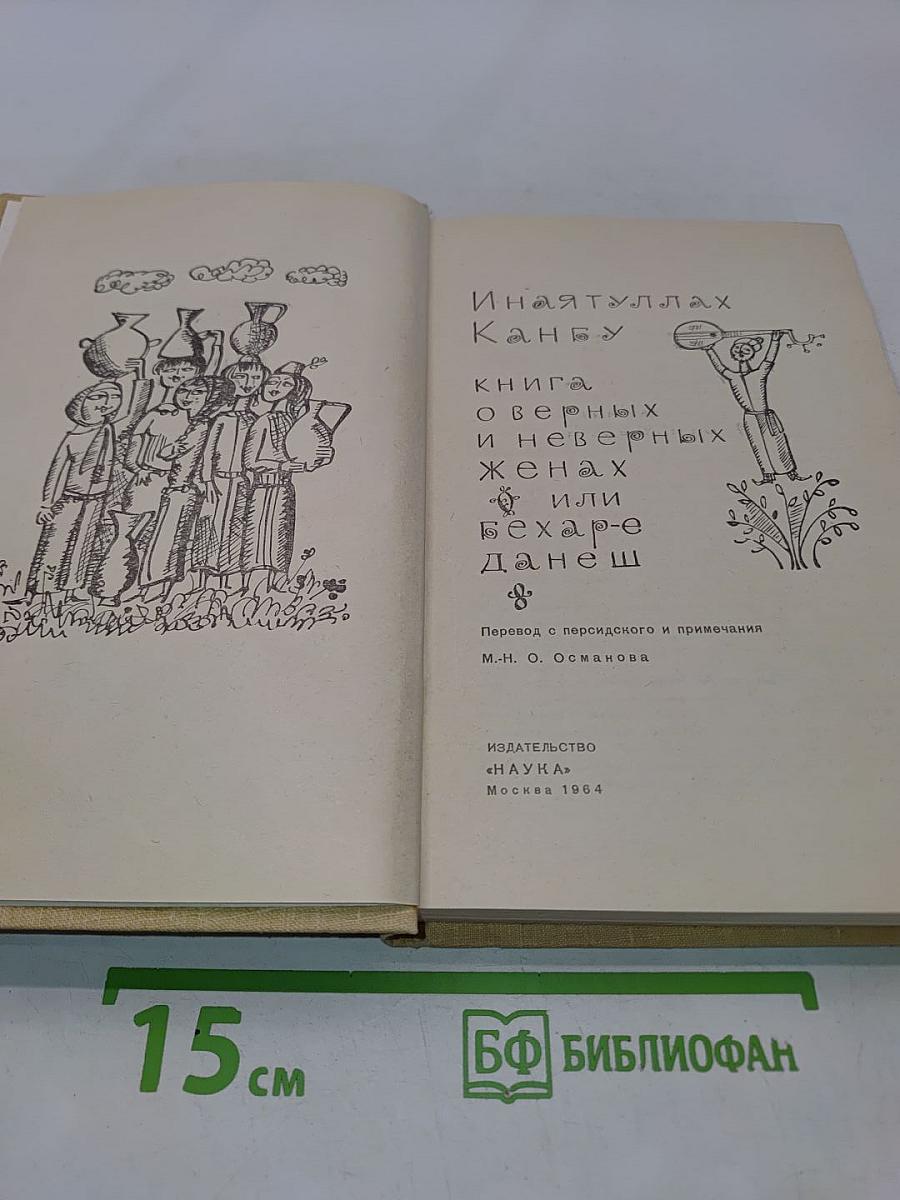 Инаятуллах
Канбу
книга
о верных
и неверных
женах
или
Бехар-е
данеш
Перевод с персидского и примечания
М.-Н. О. Османова
ИЗДАТЕЛЬСТВО
«НАУКА»
Москва 1964
15 см
БФ БИБЛИОФАН